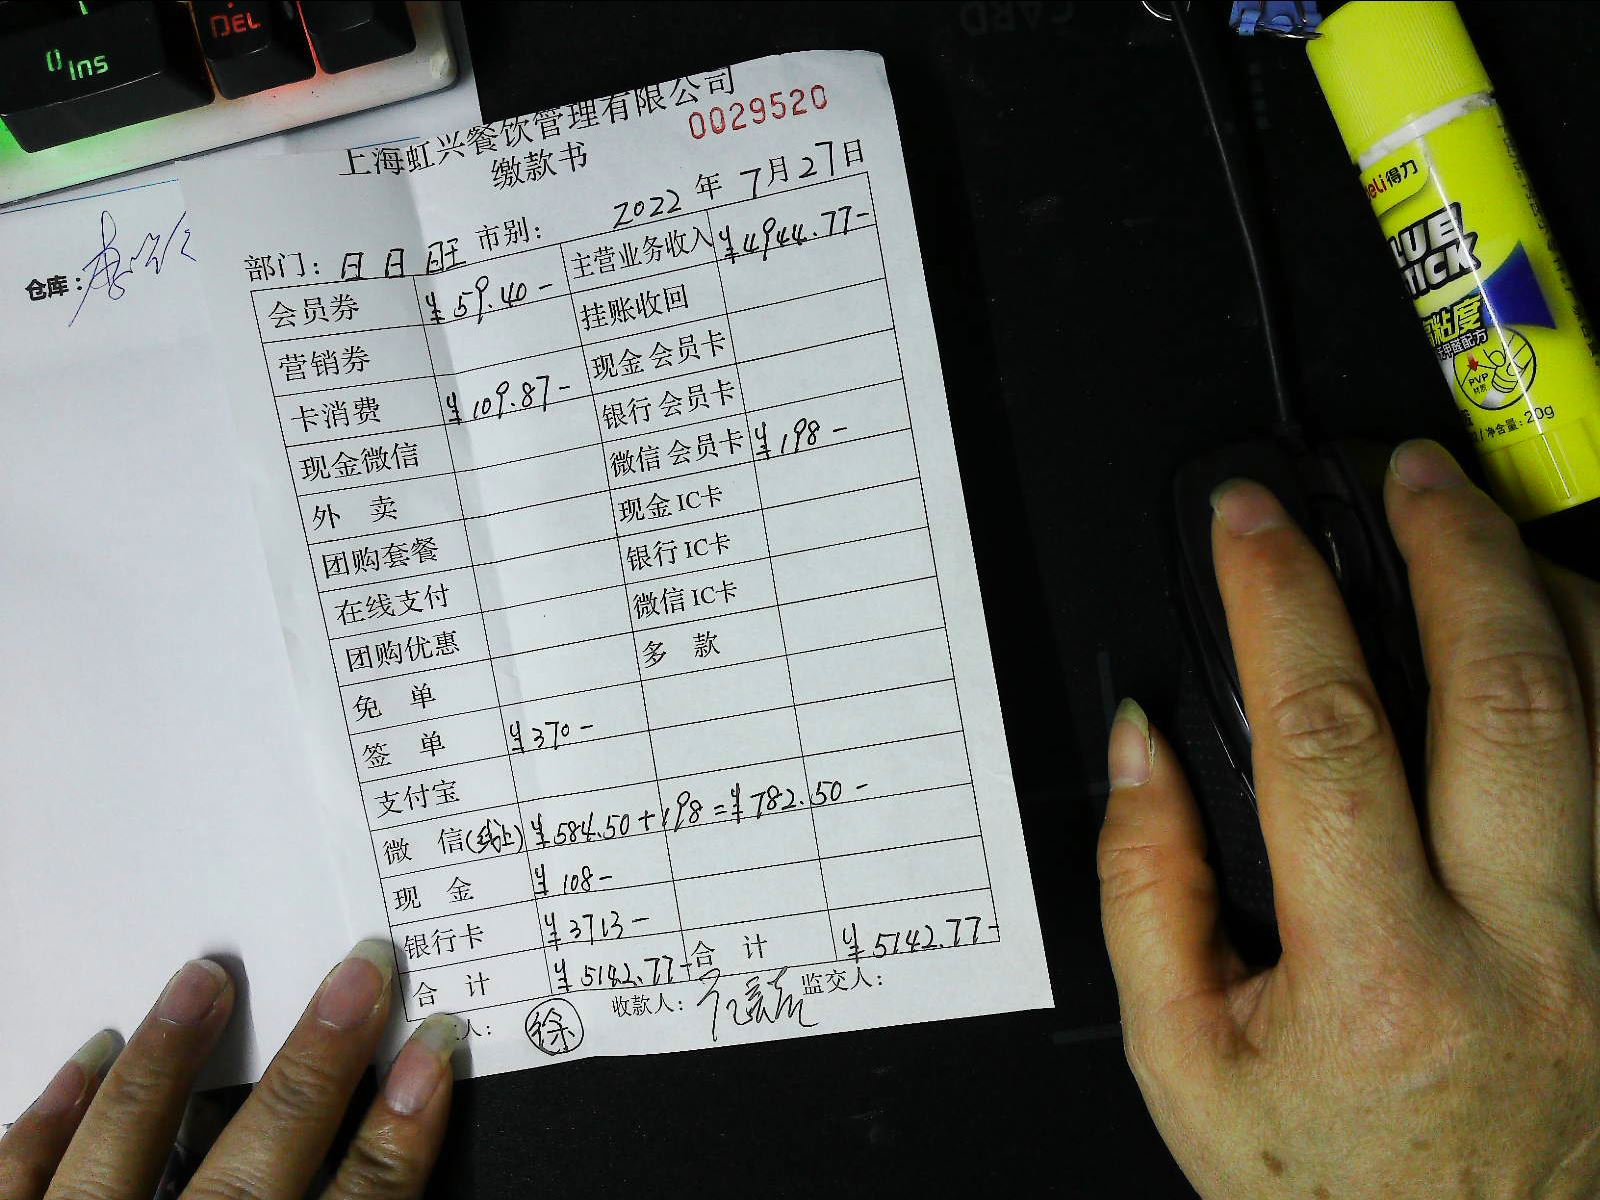 Ins
DEL
上海虹兴餐饮管理有限公司
0029520
缴款书
2022 年 7月27日
部门: 日日旺 市别:
会员券 ¥59.40- 主营业务收入 ¥4944.77-
营销券 挂账收回
卡消费 ¥109.87- 现金会员卡
现金微信 银行会员卡
外 卖 微信会员卡 ¥198-
团购套餐 现金IC卡
在线支付 银行IC卡
团购优惠 微信IC卡
免 单 多 款
签 单 ¥370-
支付宝
微 信(线上) ¥584.50+198=¥782.50-
现 金 ¥108-
银行卡 ¥3713-
合 计 ¥5142.77- 合 计 ¥5142.77-
人: 徐 收款人: 监交人:
仓库:
deli得力
GLUE
STICK
高粘度
无甲醛配方
PVP
材质
净含量: 20g